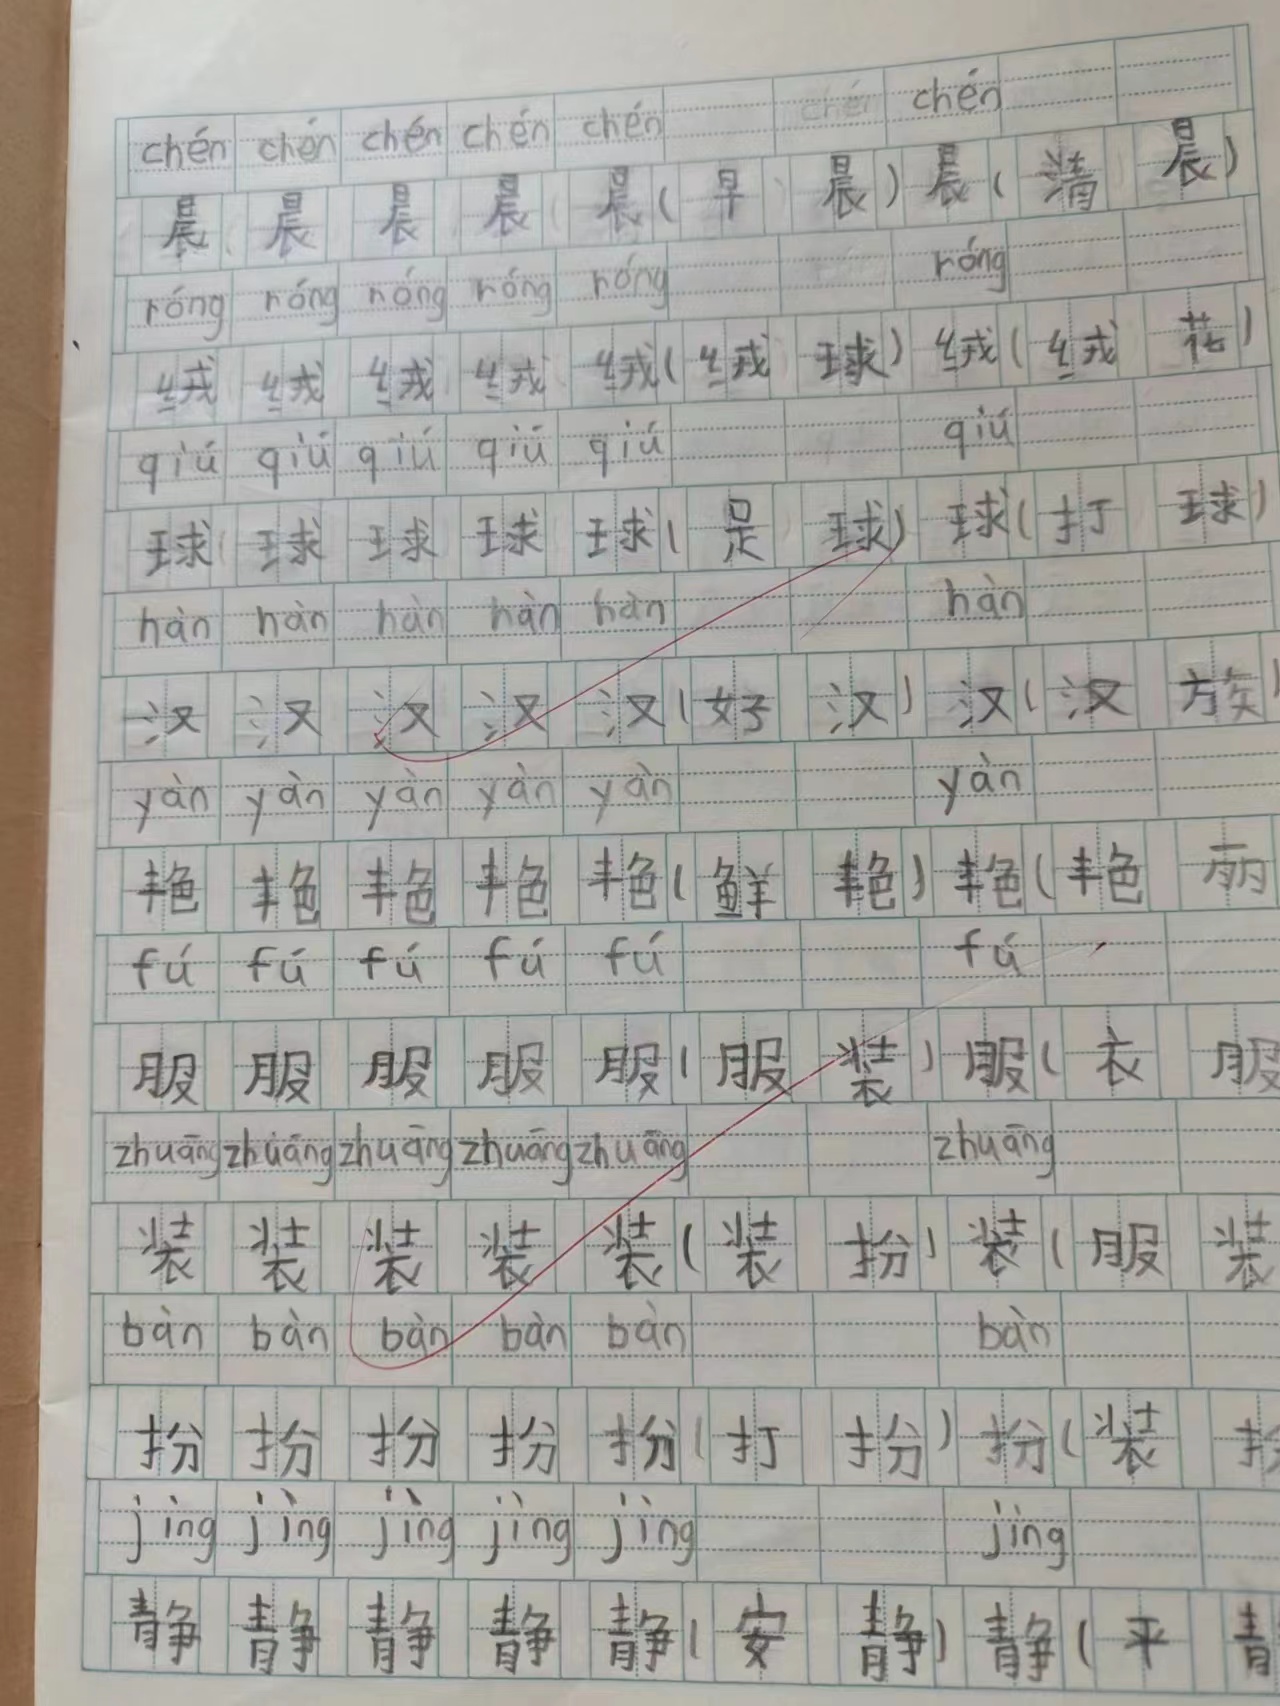 chén chén chén chén chén chén
晨 晨 晨 晨 晨(早 晨)晨(清 晨)
róng róng róng róng róng róng
绒 绒 绒 绒 绒(绒 球)绒(绒 花)
qiú qiú qiú qiú qiú qiú
球 球 球 球 球(足 球)球(打 球)
hàn hàn hàn hàn hàn hàn
汉 汉 汉 汉 汉(好 汉)汉(汉 族)
yàn yàn yàn yàn yàn yàn
艳 艳 艳 艳 艳(鲜 艳)艳(艳 丽
fú fú fú fú fú fú
服 服 服 服 服(服 装)服(衣 服
zhuāng zhuāng zhuāng zhuāng zhuāng zhuāng
装 装 装 装 装(装 扮)装(服 装
bàn bàn bàn bàn bàn bàn
扮 扮 扮 扮 扮(打 扮)扮(装 扮
jìng jìng jìng jìng jìng jìng
静 静 静 静 静(安 静)静(平